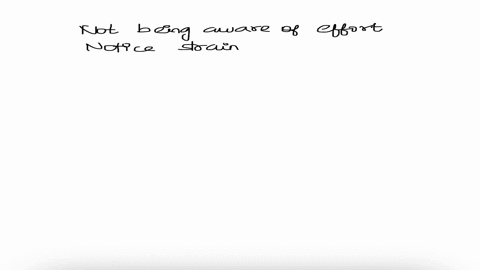 Not being aware of effort
Notice strain